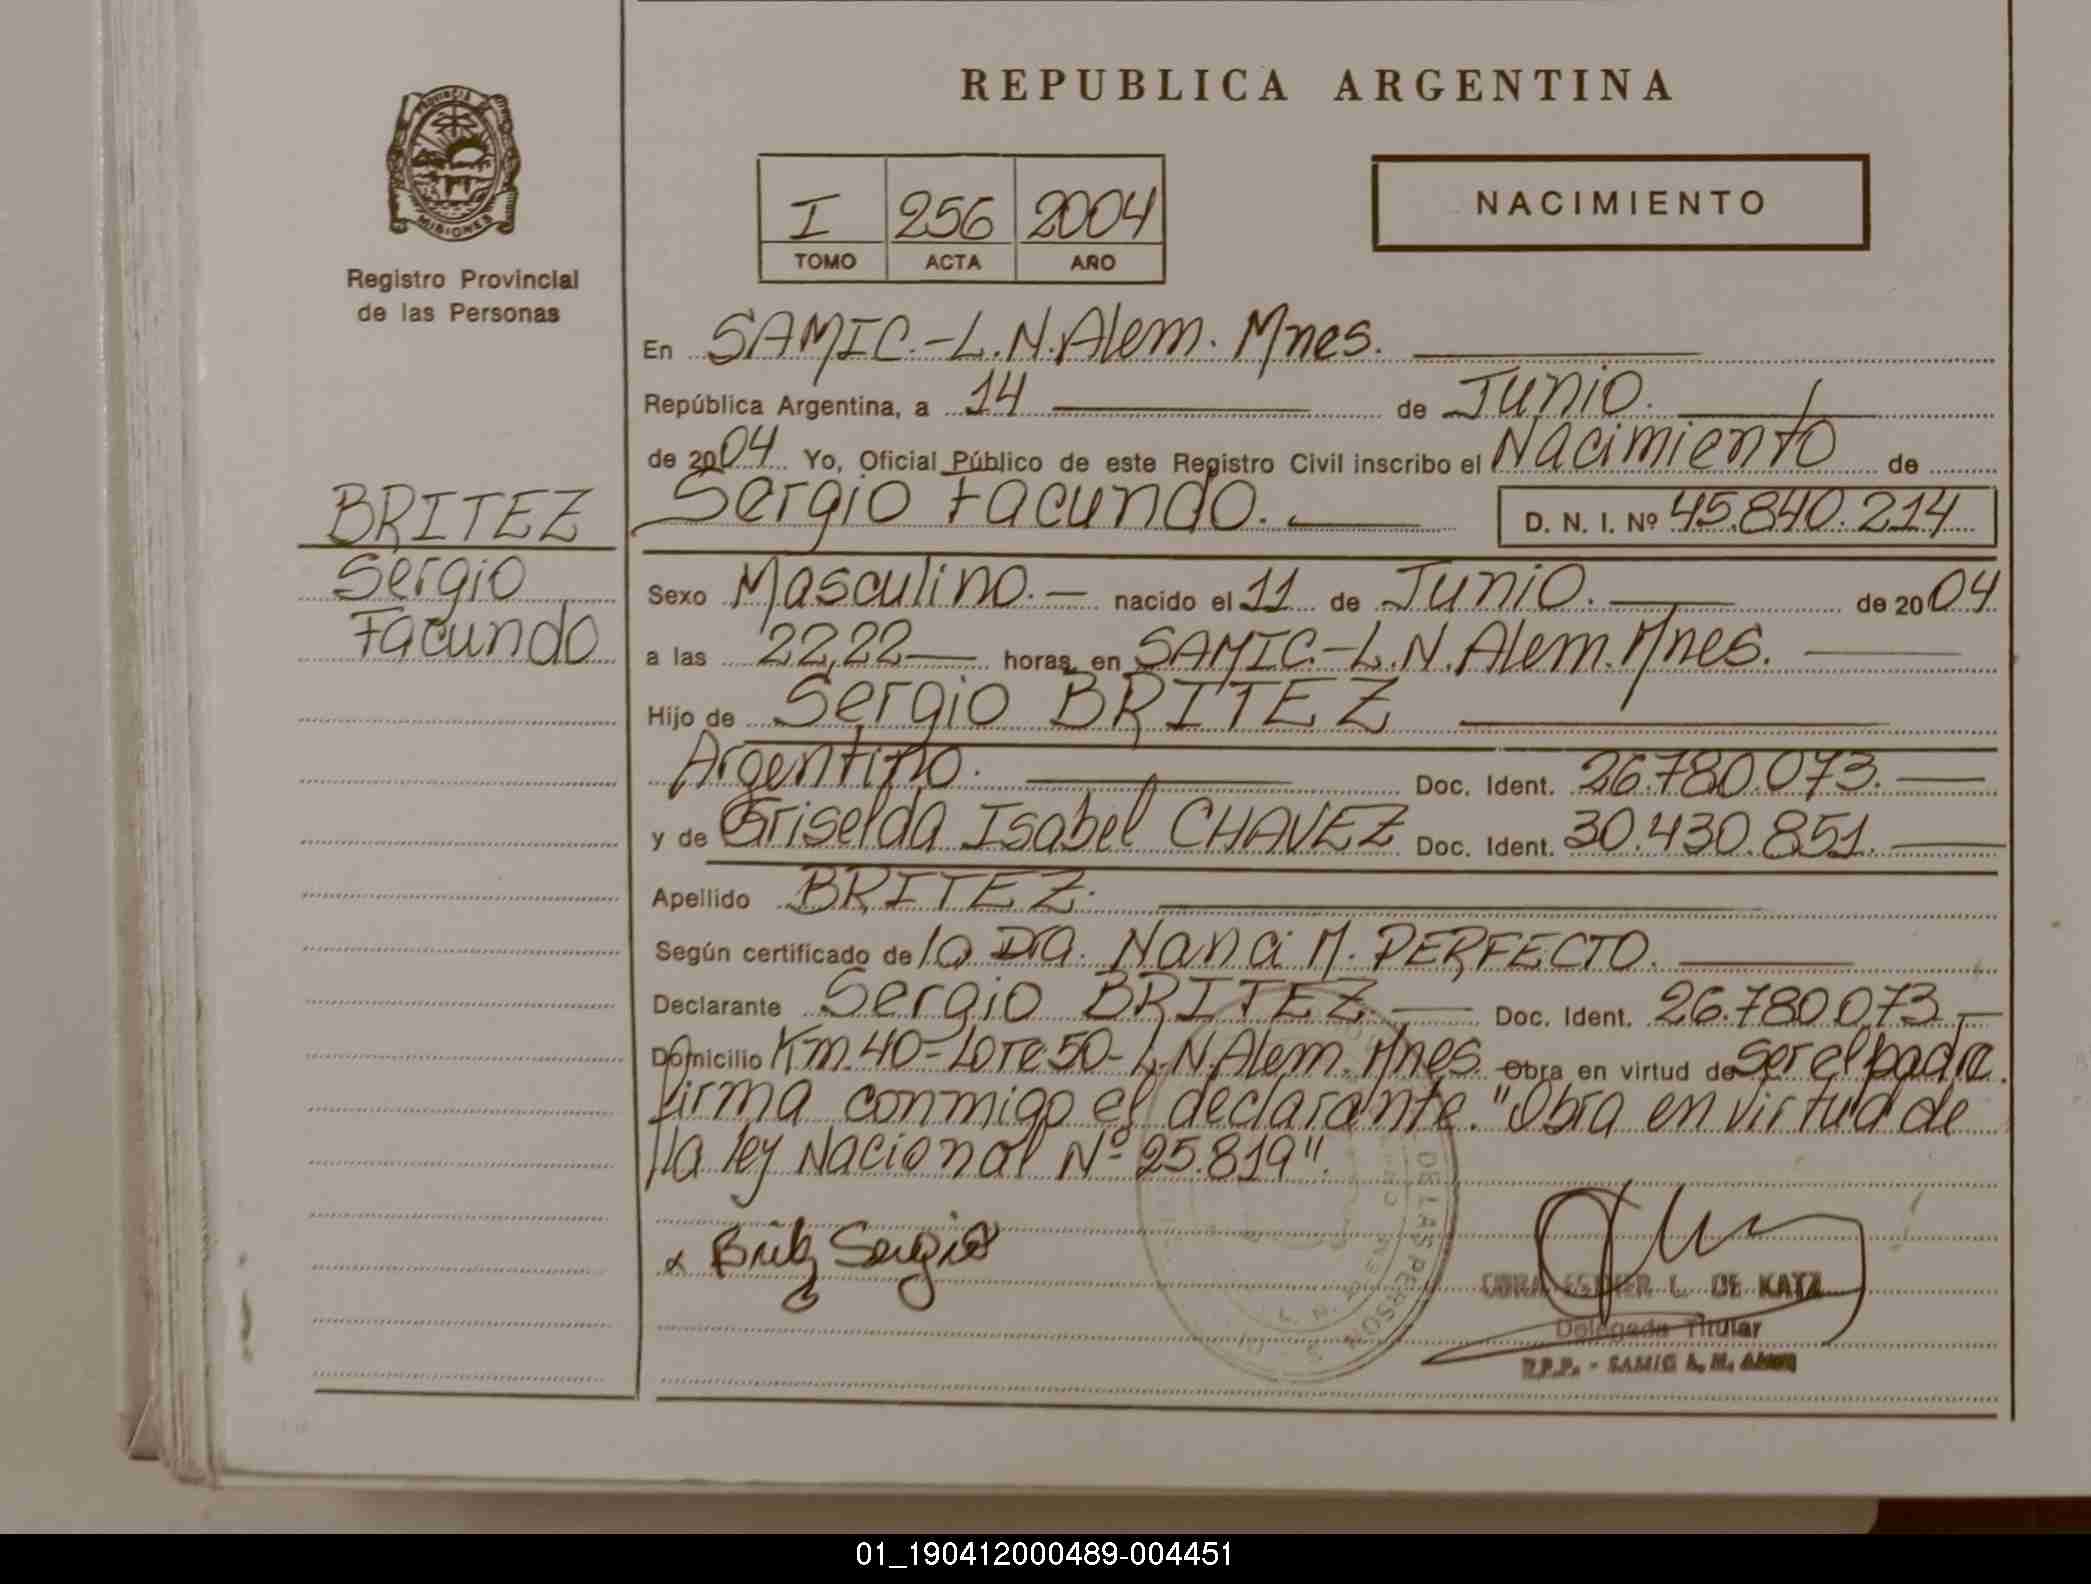 REPUBLICA ARGENTINA
PROVINCIA
MISIONES
Registro Provincial
de las Personas
NACIMIENTO
I 256 2004
TOMO ACTA AÑO
En SAMIC.-L.N.Alem. Mnes.
República Argentina, a 14 de Junio.
de 2004 Yo, Oficial Público de este Registro Civil inscribo el Nacimiento de
Sergio Facundo. D. N. I. Nº 45.840.214
BRITEZ
Sergio
Facundo
Sexo Masculino.- nacido el 11 de Junio. de 2004
a las 22,22 horas, en SAMIC.-L.N.Alem.Mnes.
Hijo de Sergio BRITEZ
Argentino. Doc. Ident. 26.780.073.
y de Griselda Isabel CHAVEZ Doc. Ident. 30.430.851.
Apellido BRITEZ.
Según certificado de la Dra. Nanci M. PERFECTO.
Declarante Sergio BRITEZ Doc. Ident. 26.780.073.-
Domicilio Km.40-Lote 50-L.N.Alem.Mnes. Obra en virtud de ser el padre.
firma conmigo el declarante."Obra en virtud de
la ley Nacional Nº 25.819".
x Britz Sergio
DE LAS PERSON
ESTHER L. DE KATZ
Delegada Titular
R.P.P. - SAMIC L. N. ALEM
01_190412000489-004451